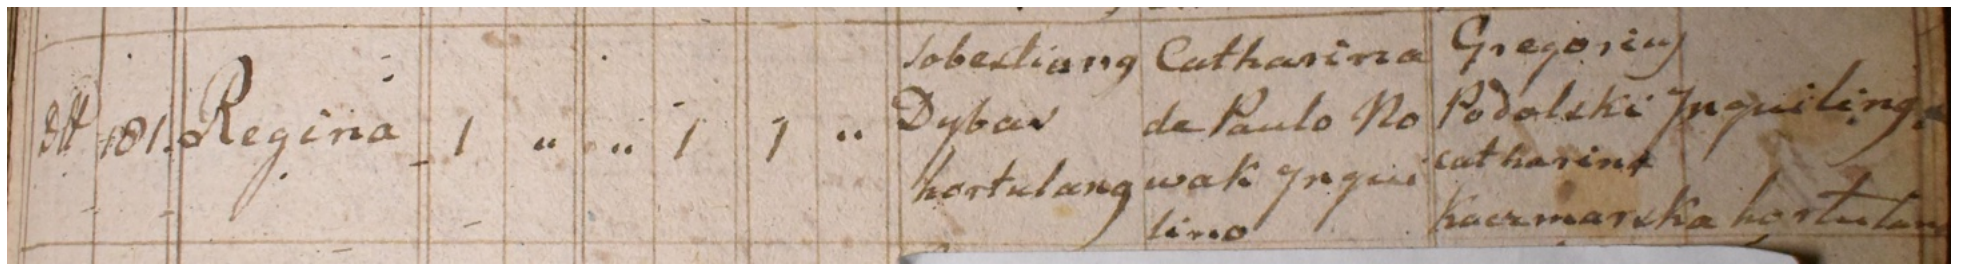 181. Regina 1 " " 1 1 "
Sobestianus
Dybas
hortulanus
Catharina
de Paulo No
wak Ynqui
lino
Gregorius
Podolski Ynquilinus
catharina
Kaczmarska hortulan